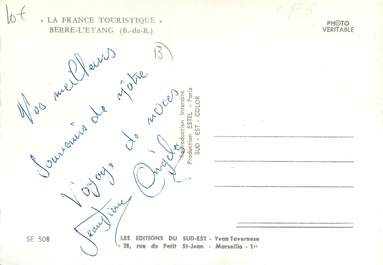 10€
" LA FRANCE TOURISTIQUE "
BERRE-L'ETANG (B.-du-R.)
PHOTO
VERITABLE
13)
Nos meilleurs
souvenirs de nôtre
Voyage de noces
Jean Pierre Angèle
Reproduction Interdite
Production ESTEL - Paris
SUD - EST - COLOR
SE 508
LES EDITIONS DU SUD-EST - Yvan Tavernese
28, rue du Petit St-Jean - Marseille - 1er